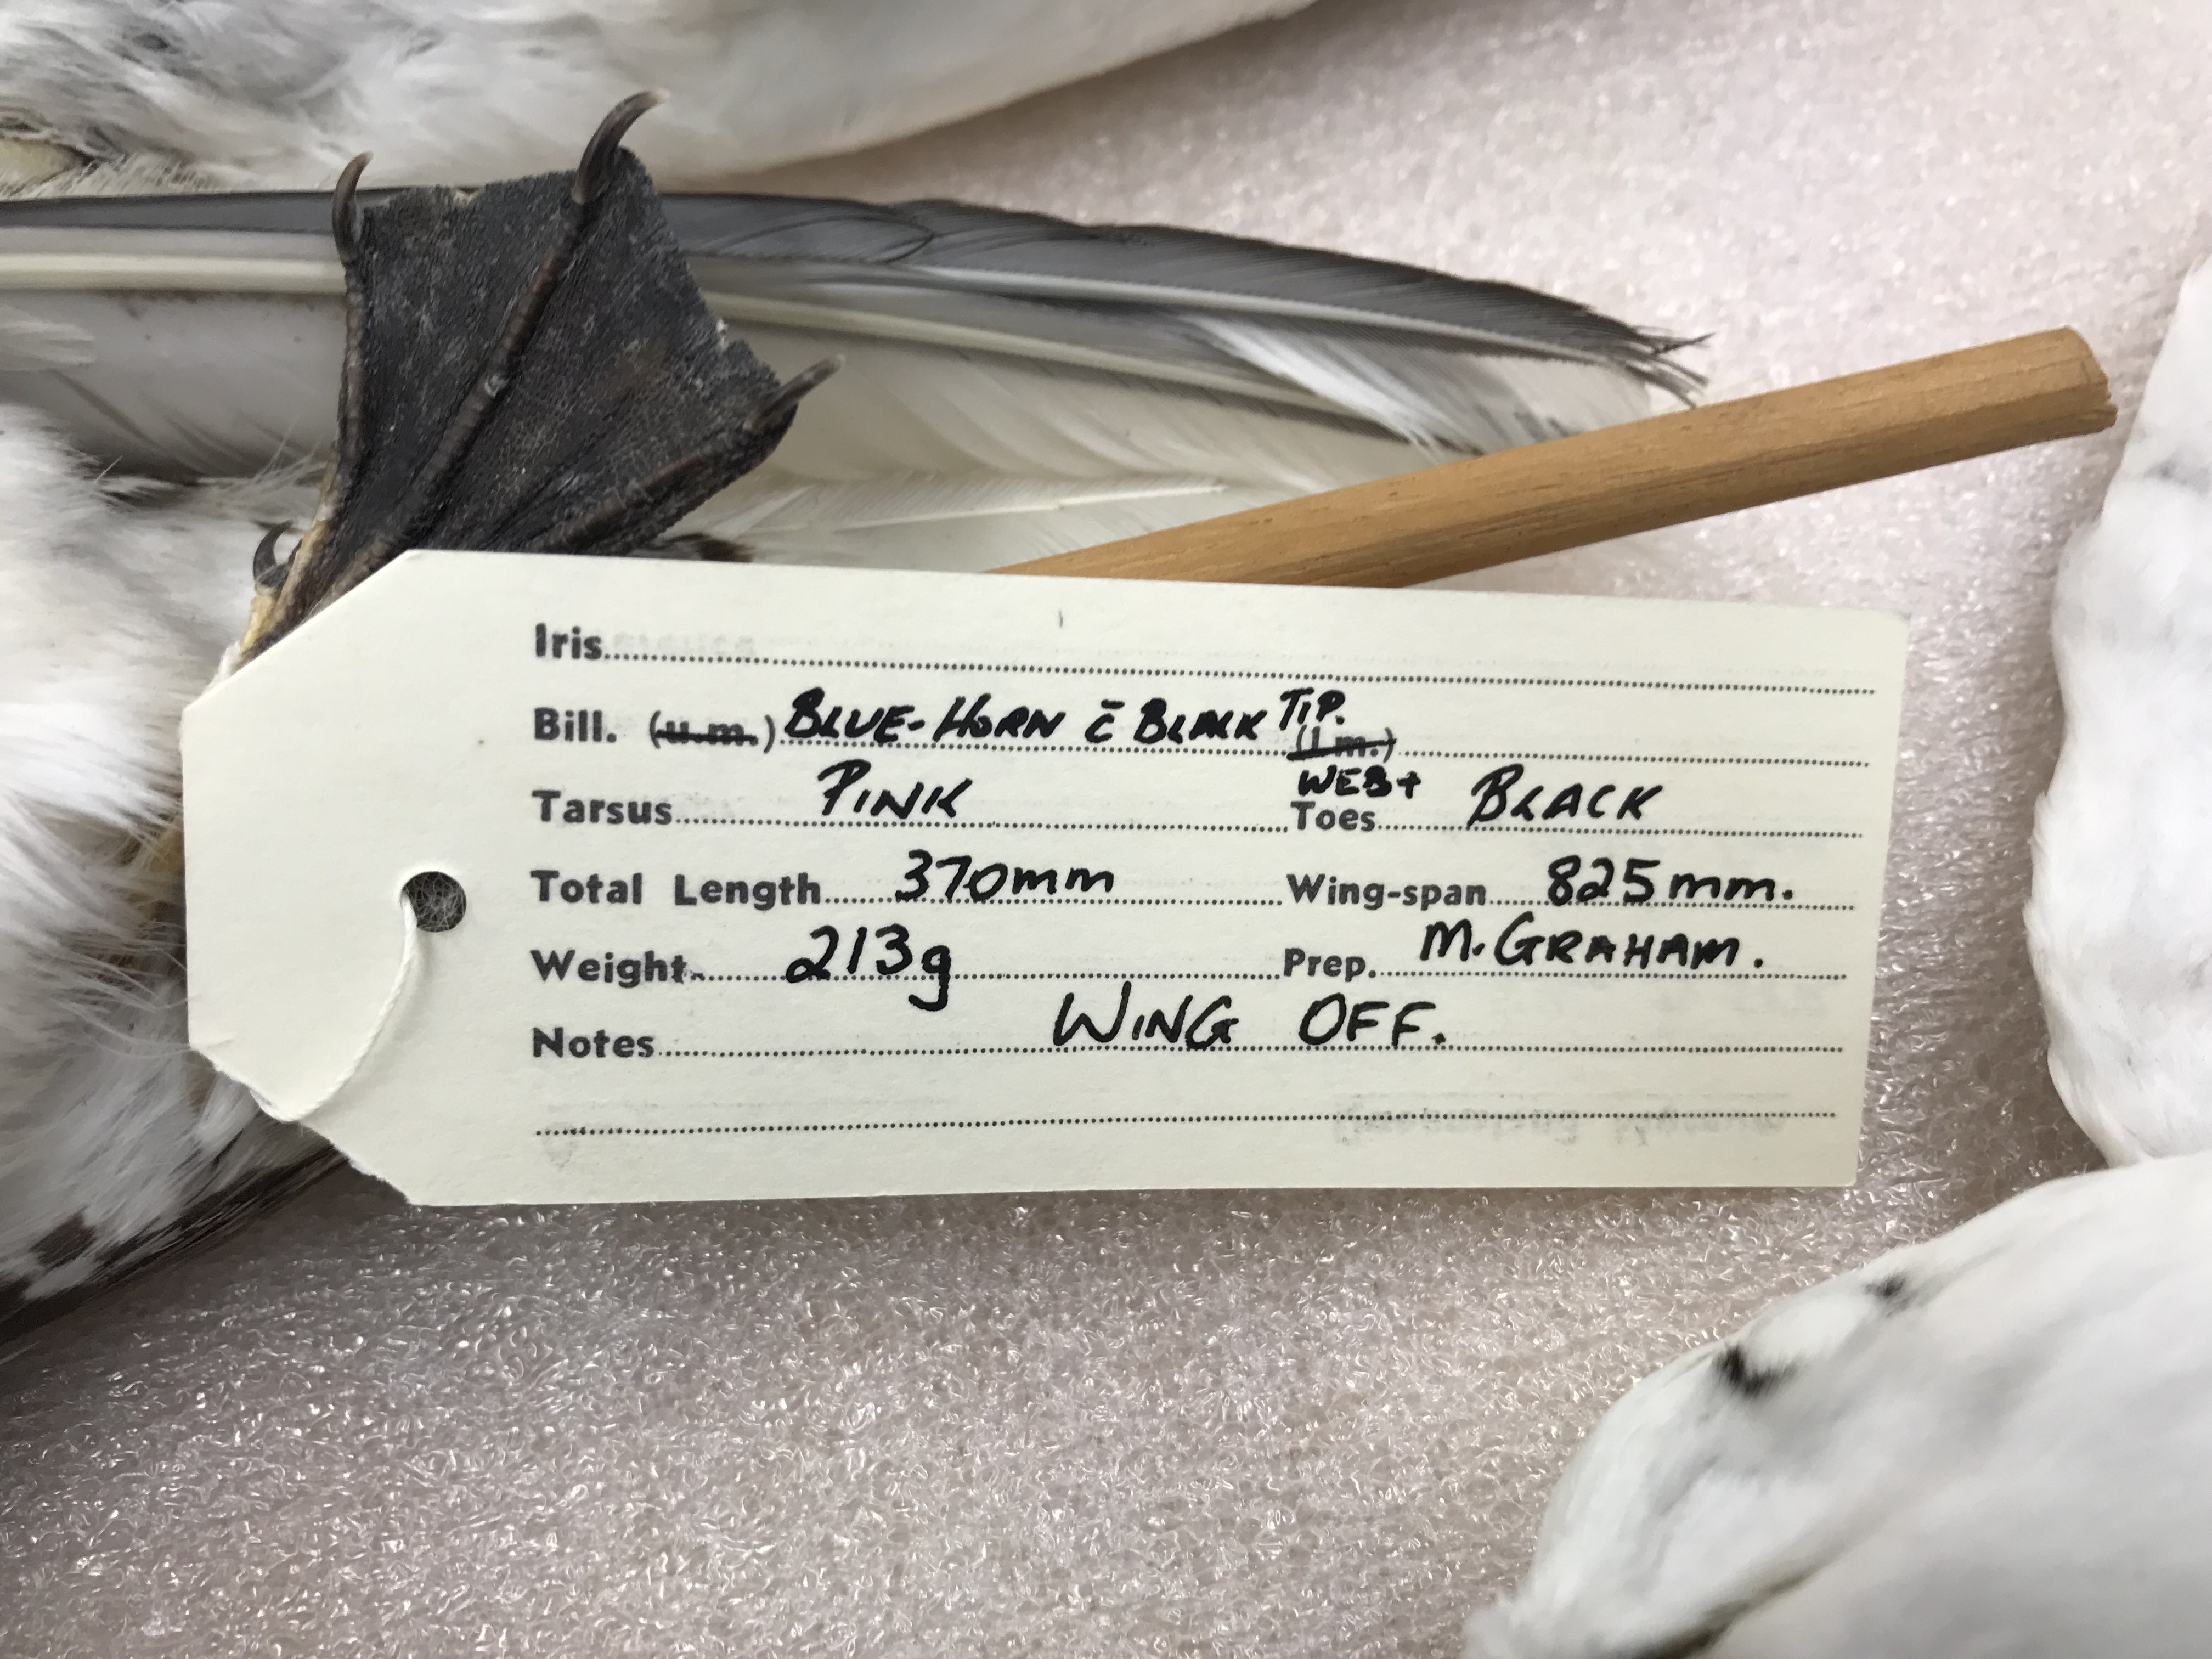 Iris
Bill. (u.m.) BLUE-HORN c̄ BLACK TIP. (l.m.)
Tarsus PINK WEB+ Toes BLACK
Total Length 370mm Wing-span 825mm.
Weight 213g Prep. M. GRAHAM.
Notes WING OFF.